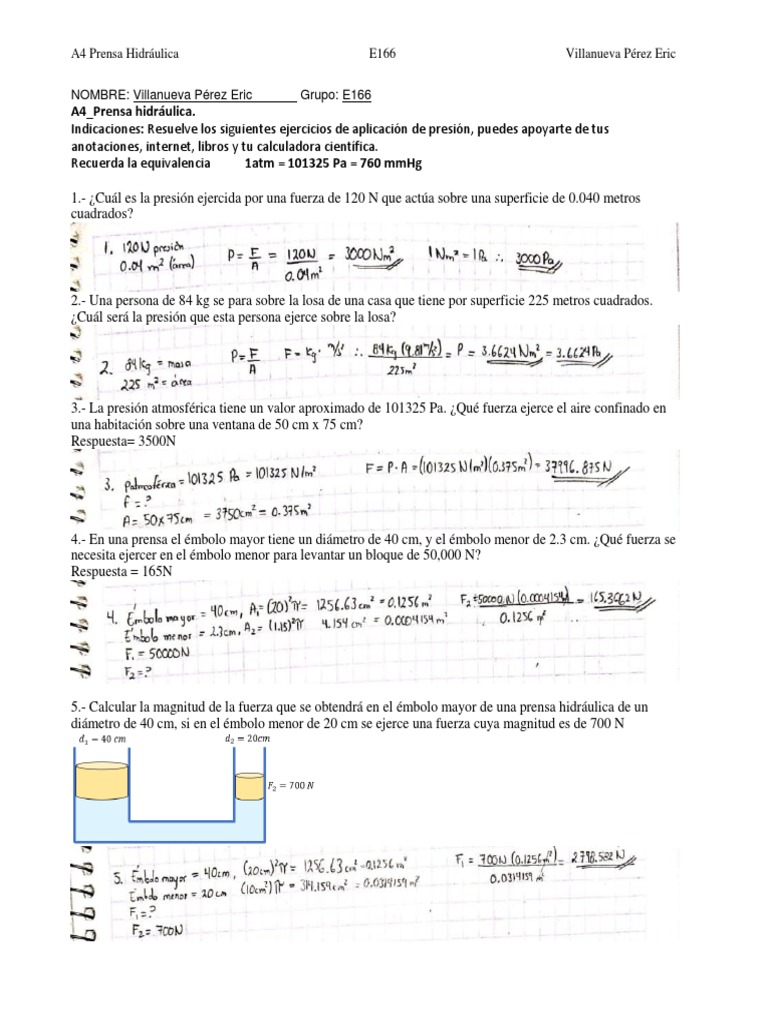 A4 Prensa Hidráulica E166 Villanueva Pérez Eric
NOMBRE: Villanueva Pérez Eric Grupo: E166
A4_Prensa hidráulica.
Indicaciones: Resuelve los siguientes ejercicios de aplicación de presión, puedes apoyarte de tus
anotaciones, internet, libros y tu calculadora científica.
Recuerda la equivalencia 1atm = 101325 Pa = 760 mmHg
1.- ¿Cuál es la presión ejercida por una fuerza de 120 N que actúa sobre una superficie de 0.040 metros
cuadrados?
1. 120N presión P= F/A = 120N/0.04m² = 3000Nm² 1Nm²=1Pa ∴ 3000Pa
0.04 m² (área)
2.- Una persona de 84 kg se para sobre la losa de una casa que tiene por superficie 225 metros cuadrados.
¿Cuál será la presión que esta persona ejerce sobre la losa?
2. 84kg = masa P=F/A F=Kg· m/s² ∴ 84kg(9.81m/s)/225m² = P = 3.6624Nm² = 3.6624Pa
225 m² = área
3.- La presión atmosférica tiene un valor aproximado de 101325 Pa. ¿Qué fuerza ejerce el aire confinado en
una habitación sobre una ventana de 50 cm x 75 cm?
Respuesta= 3500N
3. Patmosférica = 101325 Pa = 101325 N/m² F=P·A=(101325 N/m²)(0.375m²)= 37996.875N
F=?
A= 50x75cm = 3750cm² = 0.375m²
4.- En una prensa el émbolo mayor tiene un diámetro de 40 cm, y el émbolo menor de 2.3 cm. ¿Qué fuerza se
necesita ejercer en el émbolo menor para levantar un bloque de 50,000 N?
Respuesta = 165N
4. Émbolo mayor = 40cm, A₁=(20)²π= 1256.63cm²=0.1256m² F₂=50000N(0.0004154)/0.1256m² = 165.3662N
Émbolo menor = 2.3cm, A₂=(1.15)²π 4.154cm²=0.0004154m²
F₁= 50000N
F₂=?
5.- Calcular la magnitud de la fuerza que se obtendrá en el émbolo mayor de una prensa hidráulica de un
diámetro de 40 cm, si en el émbolo menor de 20 cm se ejerce una fuerza cuya magnitud es de 700 N
d₁ = 40 cm d₂ = 20cm
F₂ = 700 N
5. Émbolo mayor = 40cm, (20cm)²π= 1256.63cm²=0.1256m² F₁= 700N(0.1256m²)/0.0314159m² = 2798.582N
Émbolo menor = 20cm (10cm²)π= 314.159cm²=0.0314159m²
F₁=?
F₂=700N